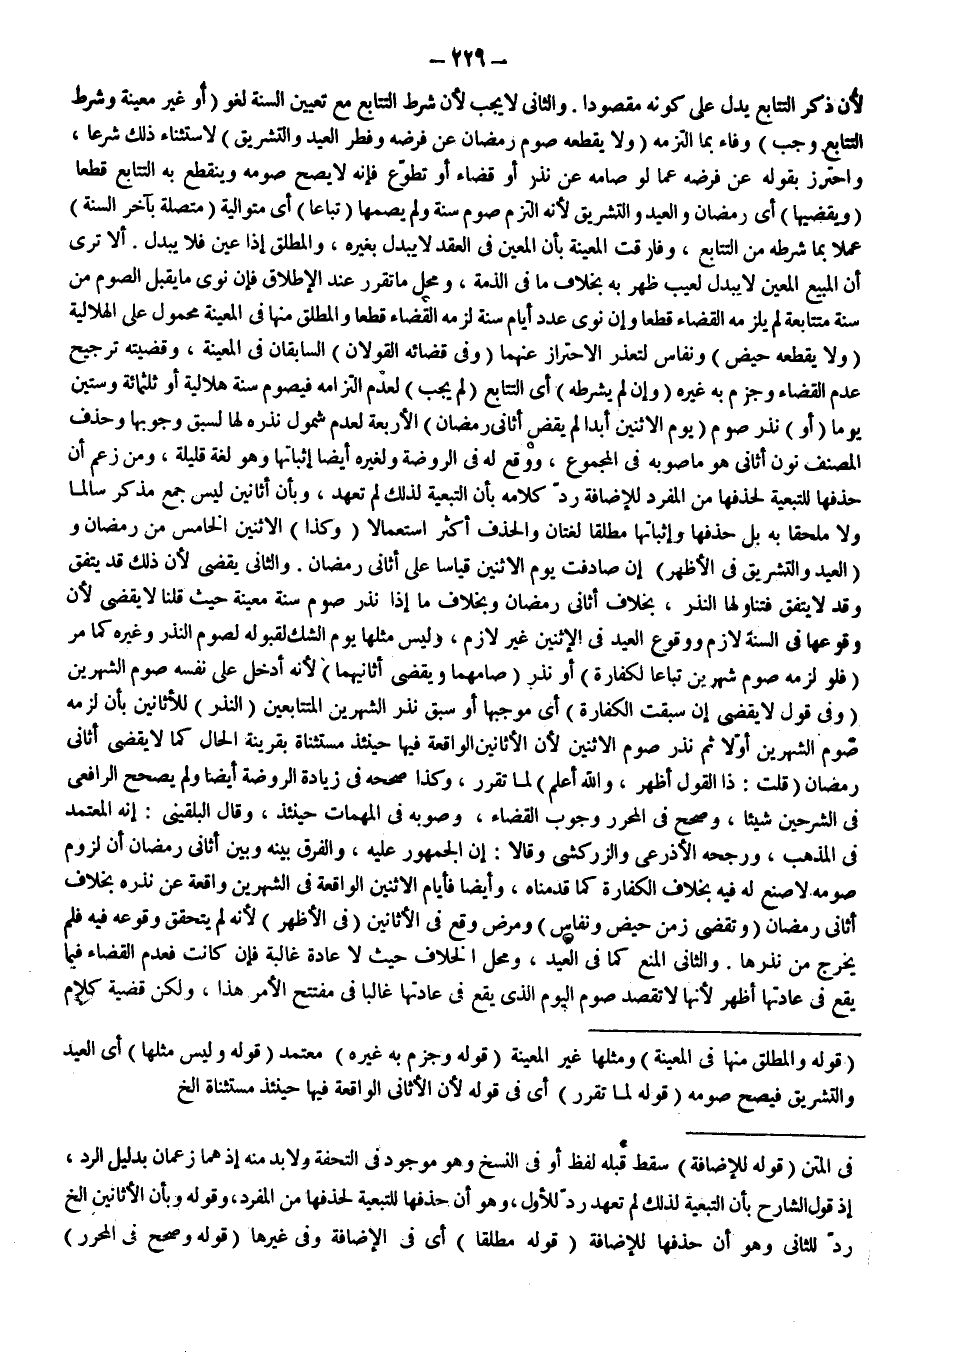 – ٢٢٩ –
لأن ذكر التتابع يدل على كونه مقصودا . والثانى لايجب لأن شرط التتابع مع تعيين السنة لغو ( أو غير معينة وشرط
التتابع وجب ) وفاء بما التزمه ( ولا يقطعه صوم رمضان عن فرضه وفطر العيد والتشريق ) لاستثناء ذلك شرعا ،
واحترز بقوله عن فرضه عما لو صامه عن نذر أو قضاء أو تطوّع فإنه لايصح صومه وينقطع به التتابع قطعا
( ويقضيها ) أى رمضان والعيد والتشريق لأنه التزم صوم سنة ولم يصمها ( تباعا ) أى متوالية ( متصلة بآخر السنة )
عملا بما شرطه من التتابع ، وفارقت المعينة بأن المعين فى العقد لايبدل بغيره ، والمطلق إذا عين فلا يبدل . ألا ترى
أن المبيع المعين لايبدل لعيب ظهر به بخلاف ما فى الذمة ، ومحل ماتقرر عند الإطلاق فإن نوى مايقبل الصوم من
سنة متتابعة لم يلزمه القضاء قطعا وإن نوى عدد أيام سنة لزمه القضاء قطعا والمطلق منها فى المعينة محمول على الهلالية
( ولا يقطعه حيض ) ونفاس لتعذر الاحتراز عنهما ( وفى قضائه القولان ) السابقان فى المعينة ، وقضيته ترجيح
عدم القضاء وجزم به غيره ( وإن لم يشرطه ) أى التتابع ( لم يجب ) لعدم التزامه فيصوم سنة هلالية أو ثلثمائة وستين
يوما ( أو ) نذر صوم ( يوم الاثنين أبدا لم يقض أثانى رمضان ) الأربعة لعدم شمول نذره لها لسبق وجوبها وحذف
المصنف نون أثانى هو ماصوبه فى المجموع ، ووقع له فى الروضة ولغيره أيضا إثباتها وهو لغة قليلة ، ومن زعم أن
حذفها للتبعية لحذفها من المفرد للإضافة ردّ كلامه بأن التبعية لذلك لم تعهد ، وبأن أثانين ليس جمع مذكر سالما
ولا ملحقا به بل حذفها وإثباتها مطلقا لغتان والحذف أكثر استعمالا ( وكذا ) الاثنين الخامس من رمضان و
( العيد والتشريق فى الأظهر ) إن صادفت يوم الاثنين قياسا على أثانى رمضان . والثانى يقضى لأن ذلك قد يتفق
وقد لايتفق فتناولها النذر ، بخلاف أثانى رمضان وبخلاف ما إذا نذر صوم سنة معينة حيث قلنا لايقضى لأن
وقوعها فى السنة لازم ووقوع العيد فى الإثنين غير لازم ، وليس مثلها يوم الشك لقبوله لصوم النذر وغيره كما مر
( فلو لزمه صوم شهرين تباعا لكفارة ) أو نذر ( صامهما ويقضى أثانيهما ) لأنه أدخل على نفسه صوم الشهرين
( وفى قول لايقضى إن سبقت الكفارة ) أى موجبها أو سبق نذر الشهرين المتتابعين ( النذر ) للأثانين بأن لزمه
صوم الشهرين أوّلا ثم نذر صوم الاثنين لأن الأثانين الواقعة فيها حينئذ مستثناة بقرينة الحال كما لايقضى أثانى
رمضان ( قلت : ذا القول أظهر ، والله أعلم ) لما تقرر ، وكذا صححه فى زيادة الروضة أيضا ولم يصحح الرافعى
فى الشرحين شيئا ، وصحح فى المحرر وجوب القضاء ، وصوبه فى المهمات حينئذ ، وقال البلقينى : إنه المعتمد
فى المذهب ، ورجحه الأذرعى والزركشى وقالا : إن الجمهور عليه ، والفرق بينه وبين أثانى رمضان أن لزوم
صومه لاصنع له فيه بخلاف الكفارة كما قدمناه ، وأيضا فأيام الاثنين الواقعة فى الشهرين واقعة عن نذره بخلاف
أثانى رمضان ( وتقضى زمن حيض ونفاس ) ومرض وقع فى الأثانين ( فى الأظهر ) لأنه لم يتحقق وقوعه فيه فلم
يخرج من نذرها . والثانى المنع كما فى العيد ، ومحل الخلاف حيث لا عادة غالبة فإن كانت فعدم القضاء فيما
يقع فى عادتها أظهر لأنها لاتقصد صوم اليوم الذى يقع فى عادتها غالبا فى مفتتح الأمر هذا ، ولكن قضية كلام
( قوله والمطلق منها فى المعينة ) ومثلها غير المعينة ( قوله وجزم به غيره ) معتمد ( قوله وليس مثلها ) أى العيد
والتشريق فيصح صومه ( قوله لما تقرر ) أى فى قوله لأن الأثانى الواقعة فيها حينئذ مستثناة الخ
فى المتن ( قوله للإضافة ) سقط قبله لفظ أو فى النسخ وهو موجود فى التحفة ولابد منه إذ هما زعمان بدليل الرد ،
إذ قول الشارح بأن التبعية لذلك لم تعهد ردّ للأول ، وهو أن حذفها للتبعية لحذفها من المفرد ، وقوله وبأن الأثانين الخ
ردّ للثانى وهو أن حذفها للإضافة ( قوله مطلقا ) أى فى الإضافة وفى غيرها ( قوله وصحح فى المحرر )